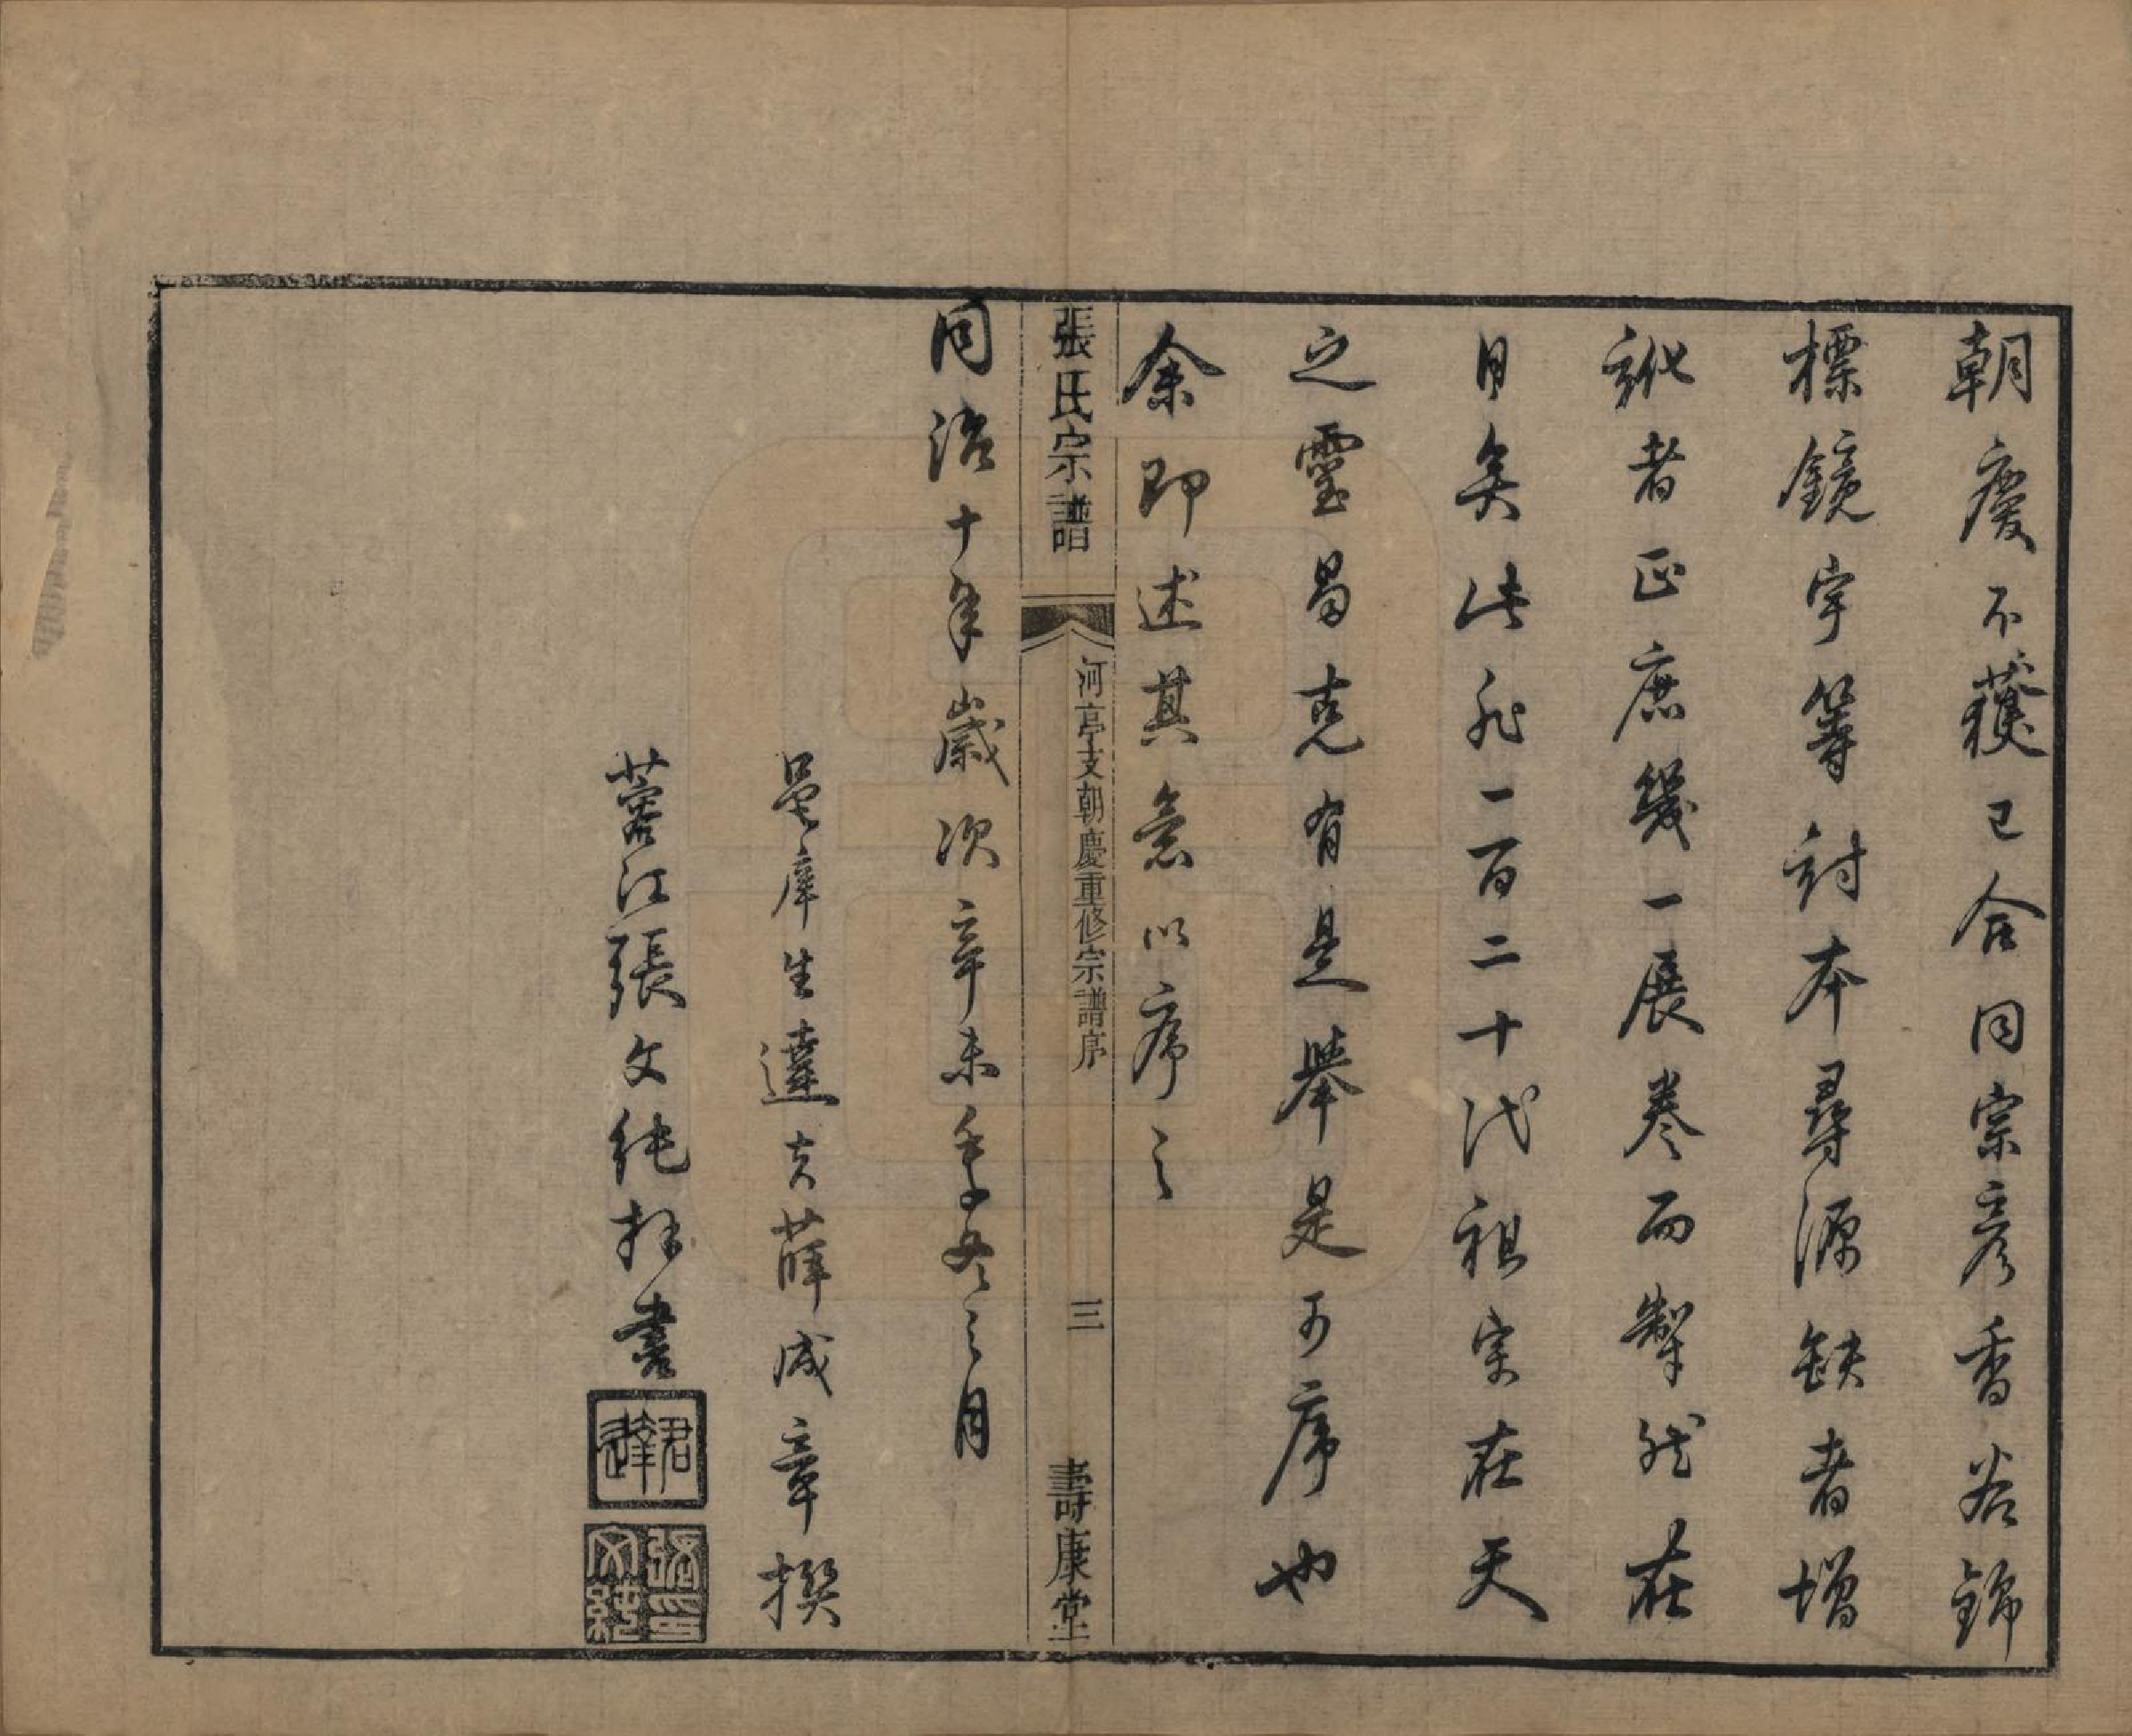 朝慶不獲已合同宗彥香谷錦
標鏡宇等討本尋源缺者增
訛者正庶幾一展卷而犂然在
目矣此非一百二十代祖宗在天
之靈曷克有是舉是可序也
余即述其意以序之
張氏宗譜
河亭支朝慶重修宗譜序
三
壽康堂
同治十年歲次辛未季冬之月
邑庠生達夫薛成章撰
蓉江張文純拜書
君達
張文純印